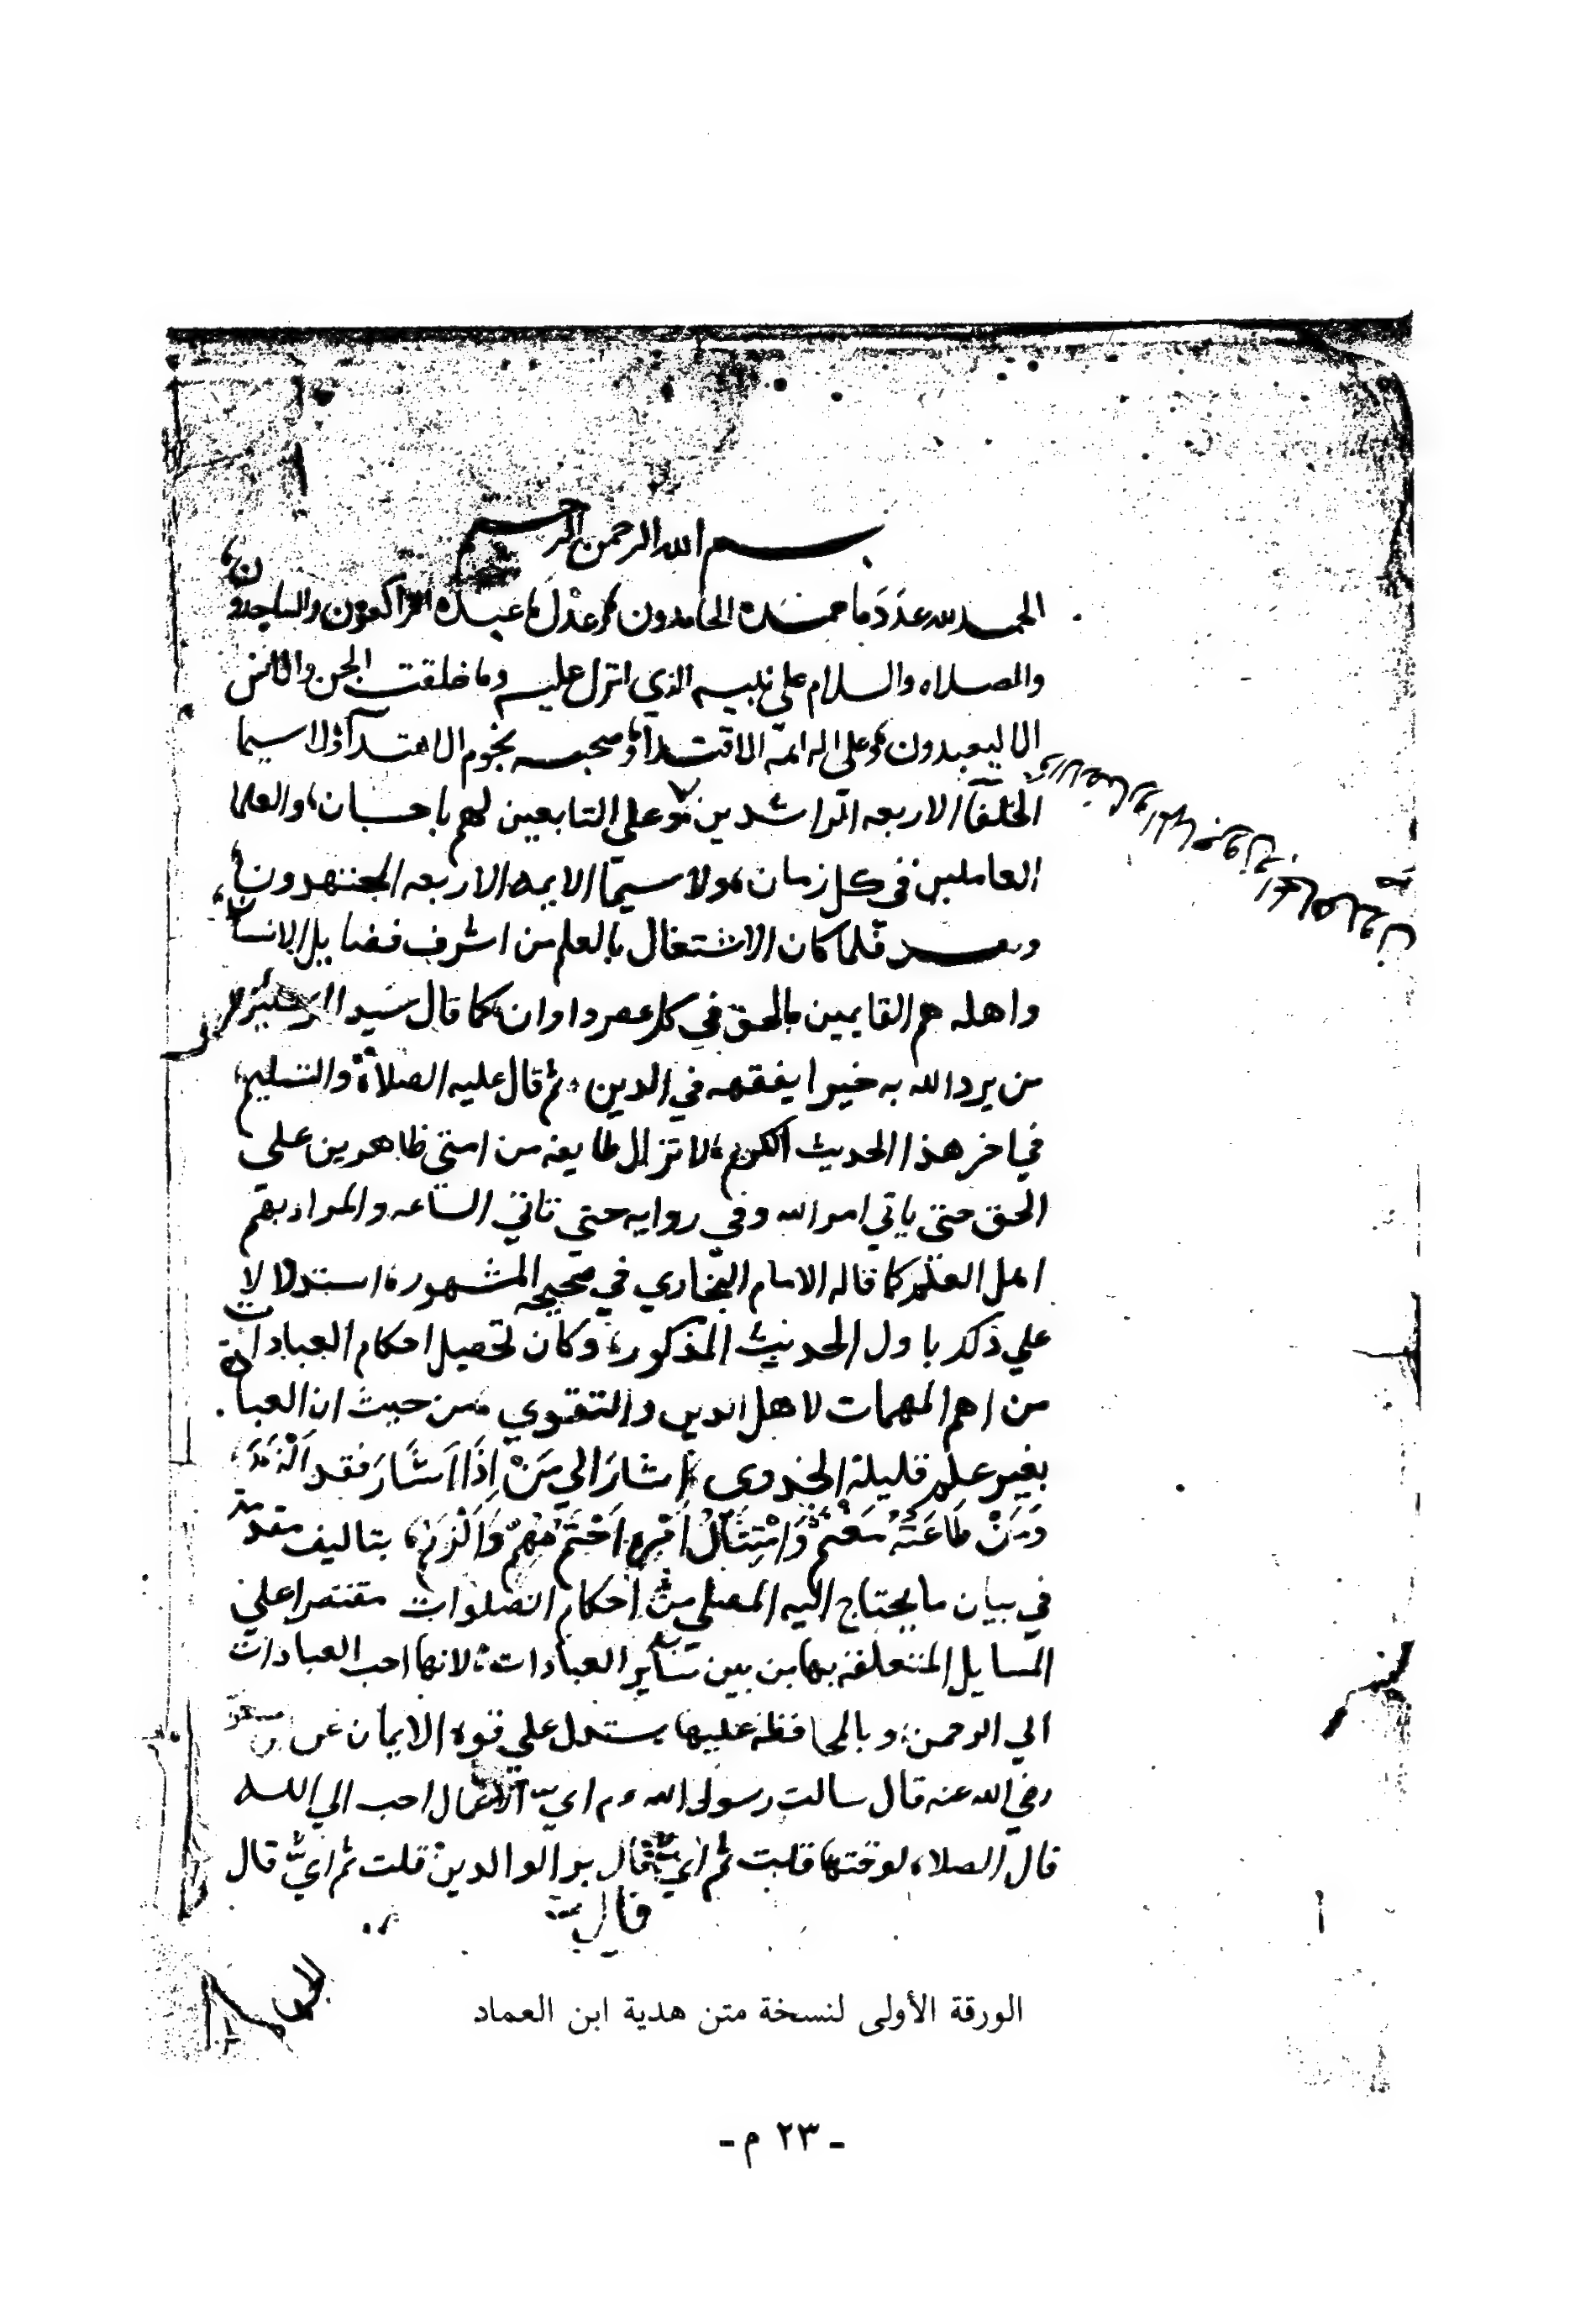 بسم الله الرحمن الرحيم
الحمد لله عدد ما حمده الحامدون وعدل ما عبده الراكعون والساجدون
والصلاه والسلام علي نبيه الذي انزل عليه وما خلقت الجن والانس
الا ليعبدون وعلى اله ائمه الاقتدآ وصحبه نجوم الاهتدآ ولا سيما
الخلفآ الاربعه الراشدين وعلى التابعين لهم باحسان والعلما
العاملين في كل زمان ولا سيما الايمه الاربعه المجتهدون
وبعد فلما كان الاشتغال بالعلم من اشرف فضايل الانسان
واهله هم القايمين بالحق في كل عصر واوان كما قال سيد المرسلين
من يرد الله به خيرا يفقهه في الدين ثم قال عليه الصلاة والتسليم
في اخر هذا الحديث الكريم لا تزال طايفه من امتي ظاهرين علي
الحق حتى ياتي امر الله وفي روايه حتي تاتي الساعه والمراد بهم
اهل العلم كما قاله الامام البخاري في صحيحه المشهور استدلالا
علي ذلك باول الحديث المذكور وكان تحصيل احكام العبادات
من اهم المهمات لاهل الدين والتقوي من حيث ان العبادة
بغير علم قليلة الجدوى اشار الي من اذا اشار فقد
ومن طاعته وامتثال امره احتم مهم والزم بتاليف مقدمة
في بيان ما يحتاج اليه المصلي من احكام الصلوات مقتصرا علي
المسايل المتعلقه بها من بين ساير العبادات لانها احب العبادات
الي الرحمن وبالمحافظه عليها يستدل علي قوه الايمان عن بن مسعود
رضي الله عنه قال سالت رسول الله اي الاعمال احب الي الله
قال الصلاه لوقتها قلت ثم اي قال بر الوالدين قلت ثم اي قال
الورقة الأولى لنسخة متن هدية ابن العماد
- ٢٣ م -